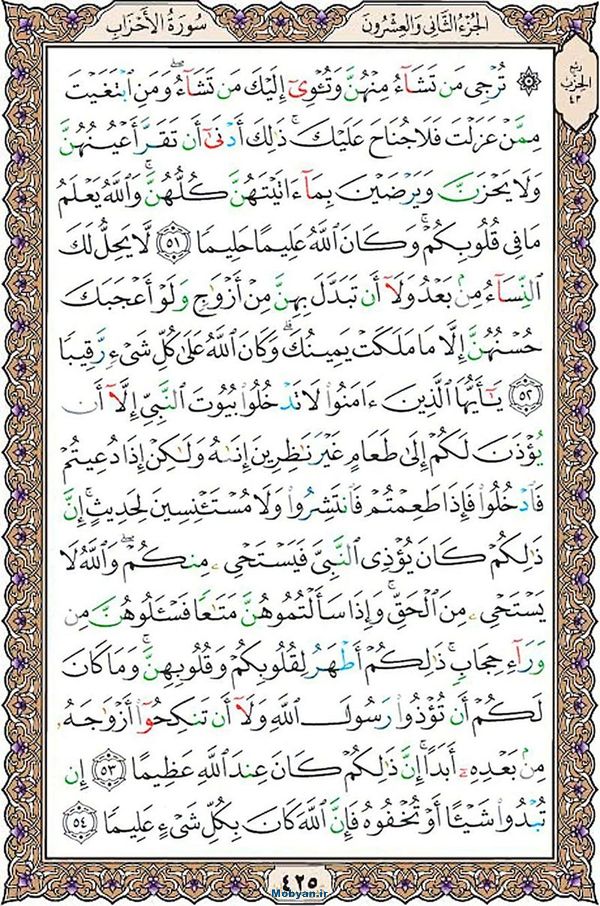 الجُزءُ الثَّانِي وَالعِشرُونَ
سُورَةُ الأَحۡزَابِ
ربع
الحزب
٤٣
۞ تُرۡجِي مَن تَشَآءُ مِنۡهُنَّ وَتُـۡٔوِيٓ إِلَيۡكَ مَن تَشَآءُۖ وَمَنِ ٱبۡتَغَيۡتَ
مِمَّنۡ عَزَلۡتَ فَلَا جُنَاحَ عَلَيۡكَۚ ذَٰلِكَ أَدۡنَىٰٓ أَن تَقَرَّ أَعۡيُنُهُنَّ
وَلَا يَحۡزَنَّ وَيَرۡضَيۡنَ بِمَآ ءَاتَيۡتَهُنَّ كُلُّهُنَّۚ وَٱللَّهُ يَعۡلَمُ
مَا فِي قُلُوبِكُمۡۚ وَكَانَ ٱللَّهُ عَلِيمًا حَلِيمٗا ٥١ لَّا يَحِلُّ لَكَ
ٱلنِّسَآءُ مِنۢ بَعۡدُ وَلَآ أَن تَبَدَّلَ بِهِنَّ مِنۡ أَزۡوَٰجٖ وَلَوۡ أَعۡجَبَكَ
حُسۡنُهُنَّ إِلَّا مَا مَلَكَتۡ يَمِينُكَۗ وَكَانَ ٱللَّهُ عَلَىٰ كُلِّ شَيۡءٖ رَّقِيبٗا
٥٢ يَـٰٓأَيُّهَا ٱلَّذِينَ ءَامَنُواْ لَا تَدۡخُلُواْ بُيُوتَ ٱلنَّبِيِّ إِلَّآ أَن
يُؤۡذَنَ لَكُمۡ إِلَىٰ طَعَامٍ غَيۡرَ نَٰظِرِينَ إِنَىٰهُ وَلَٰكِنۡ إِذَا دُعِيتُمۡ
فَٱدۡخُلُواْ فَإِذَا طَعِمۡتُمۡ فَٱنتَشِرُواْ وَلَا مُسۡتَـٔۡنِسِينَ لِحَدِيثٍۚ إِنَّ
ذَٰلِكُمۡ كَانَ يُؤۡذِي ٱلنَّبِيَّ فَيَسۡتَحۡيِۦ مِنكُمۡۖ وَٱللَّهُ لَا
يَسۡتَحۡيِۦ مِنَ ٱلۡحَقِّۚ وَإِذَا سَأَلۡتُمُوهُنَّ مَتَٰعٗا فَسۡـَٔلُوهُنَّ مِن
وَرَآءِ حِجَابٖۚ ذَٰلِكُمۡ أَطۡهَرُ لِقُلُوبِكُمۡ وَقُلُوبِهِنَّۚ وَمَا كَانَ
لَكُمۡ أَن تُؤۡذُواْ رَسُولَ ٱللَّهِ وَلَآ أَن تَنكِحُوٓاْ أَزۡوَٰجَهُۥ
مِنۢ بَعۡدِهِۦٓ أَبَدًاۚ إِنَّ ذَٰلِكُمۡ كَانَ عِندَ ٱللَّهِ عَظِيمًا ٥٣ إِن
تُبۡدُواْ شَيۡـًٔا أَوۡ تُخۡفُوهُ فَإِنَّ ٱللَّهَ كَانَ بِكُلِّ شَيۡءٍ عَلِيمٗا ٥٤
٤٢٥
Mobyan.ir